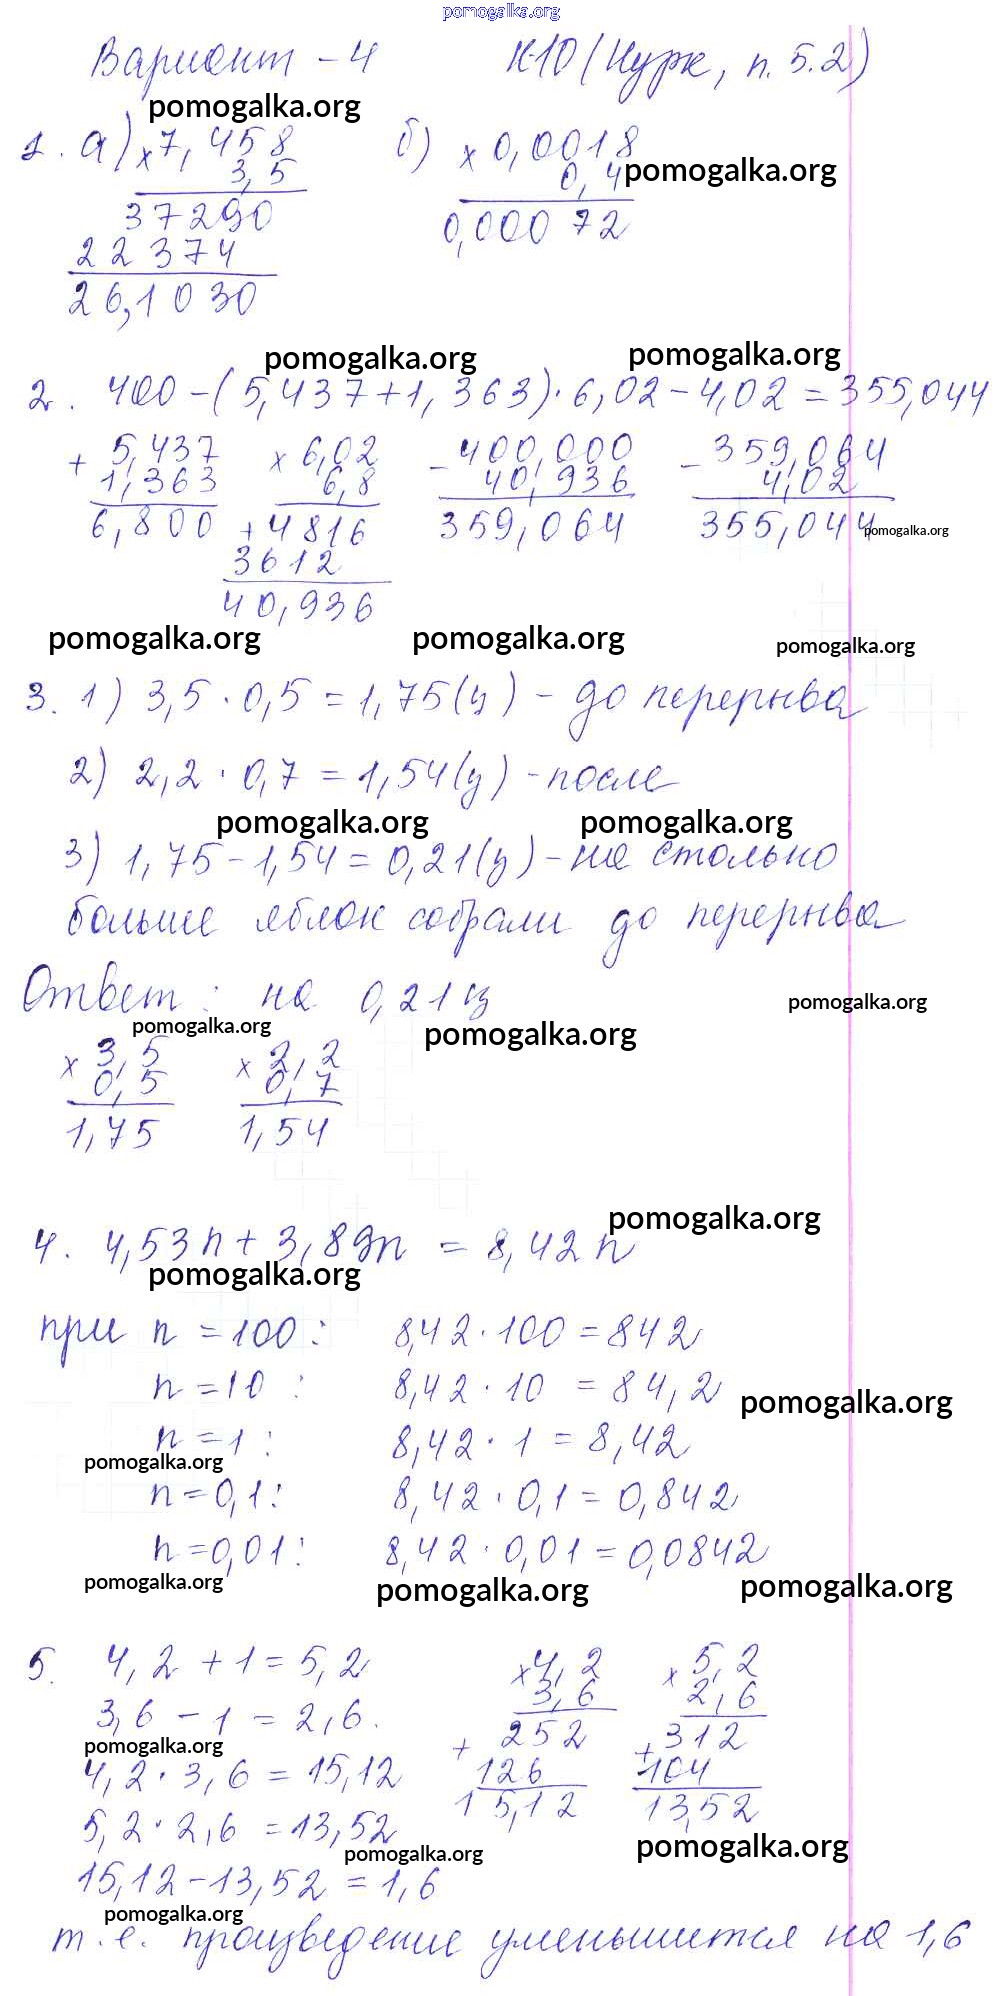 pomogalka.org
Вариант - 4 К-10 (Нурк, п. 5.2)
pomogalka.org
1. а) × 7,458 б) × 0,0018
3,5 0,4 pomogalka.org
37290 0,00072
22374
26,1030
pomogalka.org pomogalka.org
2. 400 - (5,437 + 1,363) · 6,02 - 4,02 = 355,044
+ 5,437 × 6,02 - 400,000 - 359,064
1,363 6,8 40,936 4,02
6,800 + 4816 359,064 355,044 pomogalka.org
3612
40,936
pomogalka.org pomogalka.org pomogalka.org
3. 1) 3,5 · 0,5 = 1,75 (ц) - до перерыва
2) 2,2 · 0,7 = 1,54 (ц) - после
pomogalka.org pomogalka.org
3) 1,75 - 1,54 = 0,21 (ц) - на столько
больше яблок собрали до перерыва
Ответ: на 0,21 ц pomogalka.org
pomogalka.org pomogalka.org
× 3,5 × 2,2
0,5 0,7
1,75 1,54
pomogalka.org
4. 4,53n + 3,89n = 8,42n
pomogalka.org
при n = 100: 8,42 · 100 = 842
n = 10: 8,42 · 10 = 84,2 pomogalka.org
n = 1: 8,42 · 1 = 8,42
pomogalka.org
n = 0,1: 8,42 · 0,1 = 0,842
n = 0,01: 8,42 · 0,01 = 0,0842
pomogalka.org pomogalka.org pomogalka.org
5. 4,2 + 1 = 5,2 × 4,2 × 5,2
3,6 - 1 = 2,6. 3,6 2,6
pomogalka.org + 252 + 312
4,2 · 3,6 = 15,12 126 104
5,2 · 2,6 = 13,52 15,12 13,52
pomogalka.org pomogalka.org
15,12 - 13,52 = 1,6
pomogalka.org
т.е. произведение уменьшится на 1,6